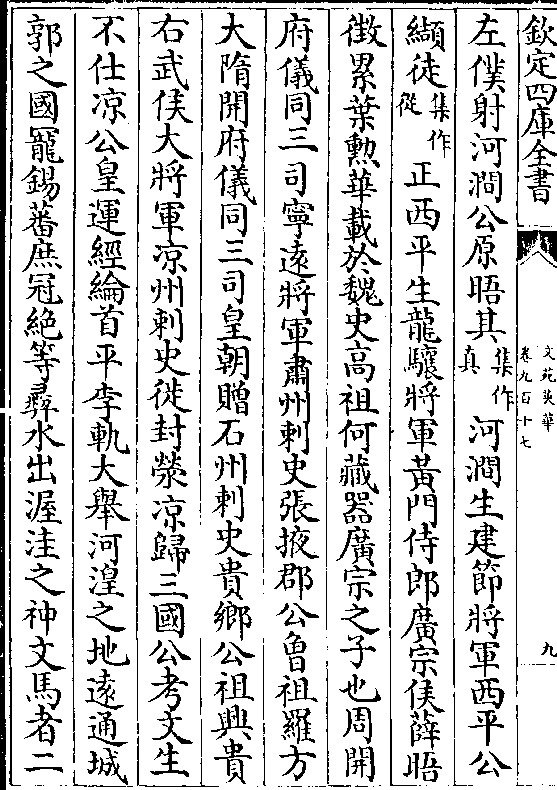 欽定四庫全書
文苑英華
卷九百十七
九
左僕射河澗公原晤其集作真河澗生建節將軍西平公
纈徒集作從正西平生龍驤將軍黃門侍郎廣宗侯薛晤
徴累葉勲華載於魏史高祖何藏器廣宗之子也周開
府儀同三司寧遠將軍肅州刺史張掖郡公曽祖羅方
大隋開府儀同三司皇朝贈石州刺史貴鄉公祖興貴
右武侯大將軍凉州刺史徙封榮凉歸三國公考文生
不仕凉公皇運經綸首平李軌大舉河湟之地遠通城
郭之國寵錫蕃庶冠絶等彛水出渥洼之神文馬者二